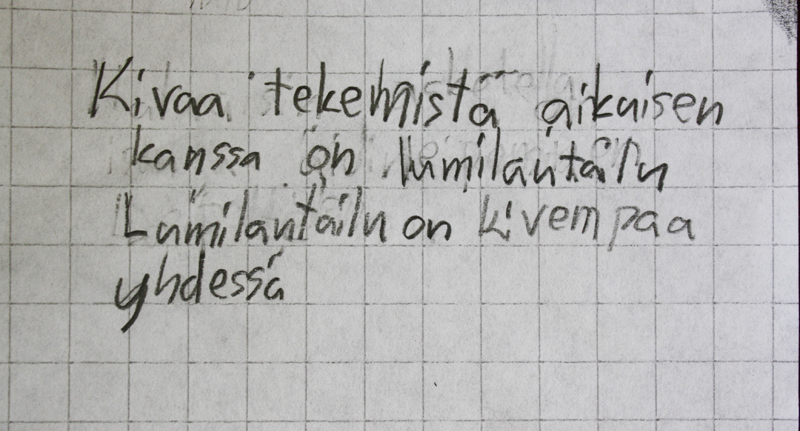 Kivaa tekemistä aikuisen
kanssa on lumilautailu
Lumilautailu on kivempaa
yhdessä